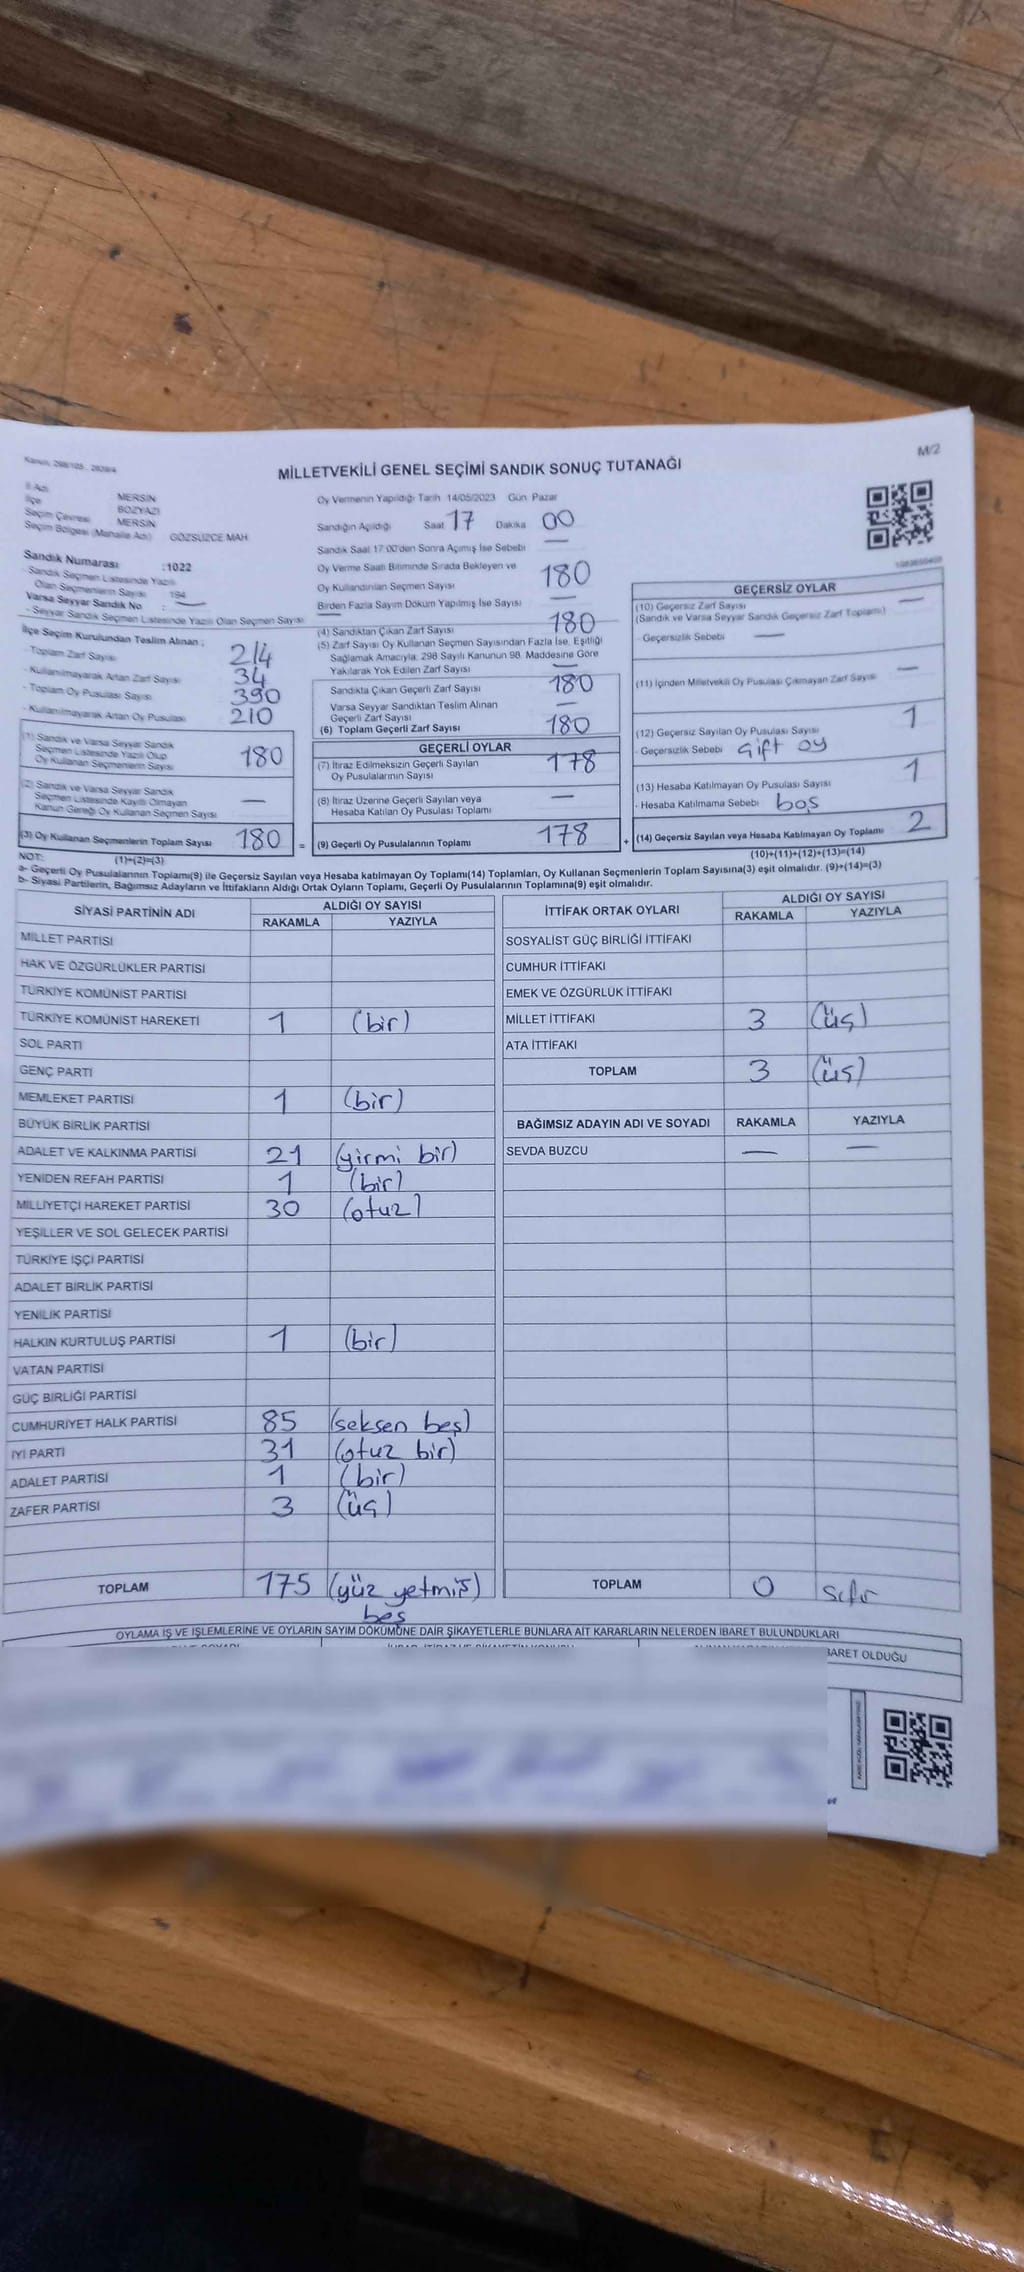 M/2
MİLLETVEKİLİ GENEL SEÇİMİ SANDIK SONUÇ TUTANAĞI
İl Adı MERSİN
İlçe BOZYAZI
Seçim Çevresi MERSİN
Seçim Bölgesi (Mahalle Adı) GÖZSÜZCE MAH.
Sandık Numarası :1022
Sandık Seçmen Listesinde Yazılı
Olan Seçmenlerin Sayısı 194
Varsa Seyyar Sandık No : —
- Seyyar Sandık Seçmen Listesinde Yazılı Olan Seçmen Sayısı —
İlçe Seçim Kurulundan Teslim Alınan ;
- Toplam Zarf Sayısı 214
- Kullanılmayarak Artan Zarf Sayısı 34
- Toplam Oy Pusulası Sayısı 390
- Kullanılmayarak Artan Oy Pusulası 210
(1) Sandık ve Varsa Seyyar Sandık
Seçmen Listesinde Yazılı Olup
Oy Kullanan Seçmenlerin Sayısı 180
(2) Sandık ve Varsa Seyyar Sandık
Seçmen Listesinde Kayıtlı Olmayan
Kanun Gereği Oy Kullanan Seçmen Sayısı —
(3) Oy Kullanan Seçmenlerin Toplam Sayısı 180 =
Oy Vermenin Yapıldığı Tarih 14/05/2023 Gün Pazar
Sandığın Açıldığı Saat 17 Dakika 00
Sandık Saat 17:00'den Sonra Açımış İse Sebebi —
Oy Verme Saati Bitiminde Sırada Bekleyen ve
Oy Kullandırılan Seçmen Sayısı 180
Birden Fazla Sayım Döküm Yapılmış İse Sayısı —
(4) Sandıktan Çıkan Zarf Sayısı 180
(5) Zarf Sayısı Oy Kullanan Seçmen Sayısından Fazla İse, Eşitliği
Sağlamak Amacıyla; 298 Sayılı Kanunun 98. Maddesine Göre
Yakılarak Yok Edilen Zarf Sayısı —
Sandıkta Çıkan Geçerli Zarf Sayısı 180
Varsa Seyyar Sandıktan Teslim Alınan
Geçerli Zarf Sayısı —
(6) Toplam Geçerli Zarf Sayısı 180
GEÇERLİ OYLAR
(7) İtiraz Edilmeksizin Geçerli Sayılan
Oy Pusulalarının Sayısı 178
(8) İtiraz Üzerine Geçerli Sayılan veya
Hesaba Katılan Oy Pusulası Toplamı —
(9) Geçerli Oy Pusulalarının Toplamı 178 +
GEÇERSİZ OYLAR
(10) Geçersiz Zarf Sayısı —
(Sandık ve Varsa Seyyar Sandık Geçersiz Zarf Toplamı)
- Geçersizlik Sebebi —
(11) İçinden Milletvekili Oy Pusulası Çıkmayan Zarf Sayısı —
(12) Geçersiz Sayılan Oy Pusulası Sayısı 1
- Geçersizlik Sebebi Çift oy
(13) Hesaba Katılmayan Oy Pusulası Sayısı 1
- Hesaba Katılmama Sebebi boş
(14) Geçersiz Sayılan veya Hesaba Katılmayan Oy Toplamı 2
NOT: (1)+(2)=(3) (10)+(11)+(12)+(13)=(14)
a- Geçerli Oy Pusulalarının Toplamı(9) ile Geçersiz Sayılan veya Hesaba Katılmayan Oy Toplamı(14) Toplamları, Oy Kullanan Seçmenlerin Toplam Sayısına(3) eşit olmalıdır. (9)+(14)=(3)
b- Siyasi Partilerin, Bağımsız Adayların ve İttifakların Aldığı Ortak Oyların Toplamı, Geçerli Oy Pusulalarının Toplamına(9) eşit olmalıdır.
SİYASİ PARTİNİN ADI ALDIĞI OY SAYISI
RAKAMLA YAZIYLA
MİLLET PARTİSİ
HAK VE ÖZGÜRLÜKLER PARTİSİ
TÜRKİYE KOMÜNİST PARTİSİ
TÜRKİYE KOMÜNİST HAREKETİ 1 (bir)
SOL PARTİ
GENÇ PARTİ
MEMLEKET PARTİSİ 1 (bir)
BÜYÜK BİRLİK PARTİSİ
ADALET VE KALKINMA PARTİSİ 21 (yirmi bir)
YENİDEN REFAH PARTİSİ 1 (bir)
MİLLİYETÇİ HAREKET PARTİSİ 30 (otuz)
YEŞİLLER VE SOL GELECEK PARTİSİ
TÜRKİYE İŞÇİ PARTİSİ
ADALET BİRLİK PARTİSİ
YENİLİK PARTİSİ
HALKIN KURTULUŞ PARTİSİ 1 (bir)
VATAN PARTİSİ
GÜÇ BİRLİĞİ PARTİSİ
CUMHURİYET HALK PARTİSİ 85 (seksen beş)
İYİ PARTİ 31 (otuz bir)
ADALET PARTİSİ 1 (bir)
ZAFER PARTİSİ 3 (üç)
TOPLAM 175 (yüz yetmiş)
beş
İTTİFAK ORTAK OYLARI ALDIĞI OY SAYISI
RAKAMLA YAZIYLA
SOSYALİST GÜÇ BİRLİĞİ İTTİFAKI
CUMHUR İTTİFAKI
EMEK VE ÖZGÜRLÜK İTTİFAKI
MİLLET İTTİFAKI 3 (üç)
ATA İTTİFAKI
TOPLAM 3 (üç)
BAĞIMSIZ ADAYIN ADI VE SOYADI RAKAMLA YAZIYLA
SEVDA BUZCU — —
TOPLAM 0 sıfır
OYLAMA İŞ VE İŞLEMLERİNE VE OYLARIN SAYIM DÖKÜMÜNE DAİR ŞİKAYETLERLE BUNLARA AİT KARARLARIN NELERDEN İBARET BULUNDUKLARI
BARET OLDUĞU